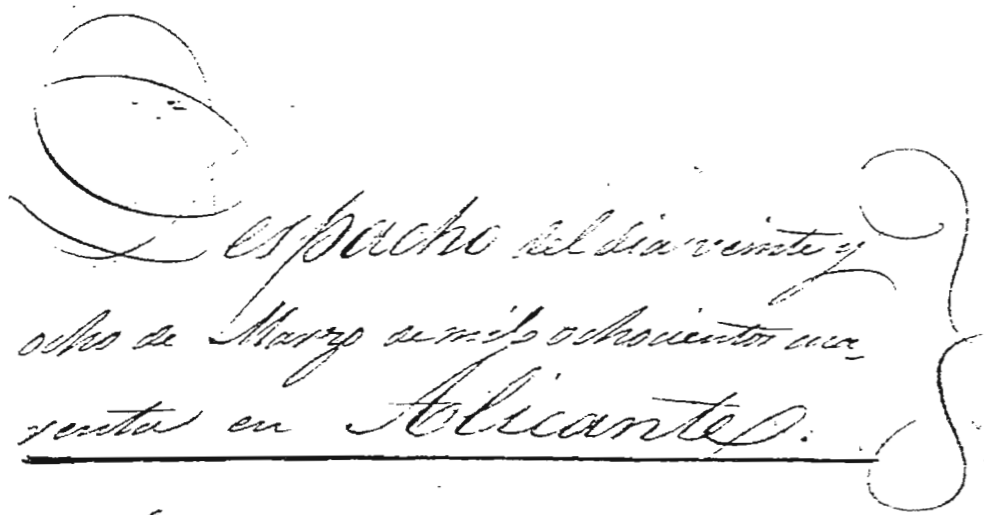 Despacho del dia veinte y
ocho de Marzo de mil ochocientos cua-
renta en Alicante.